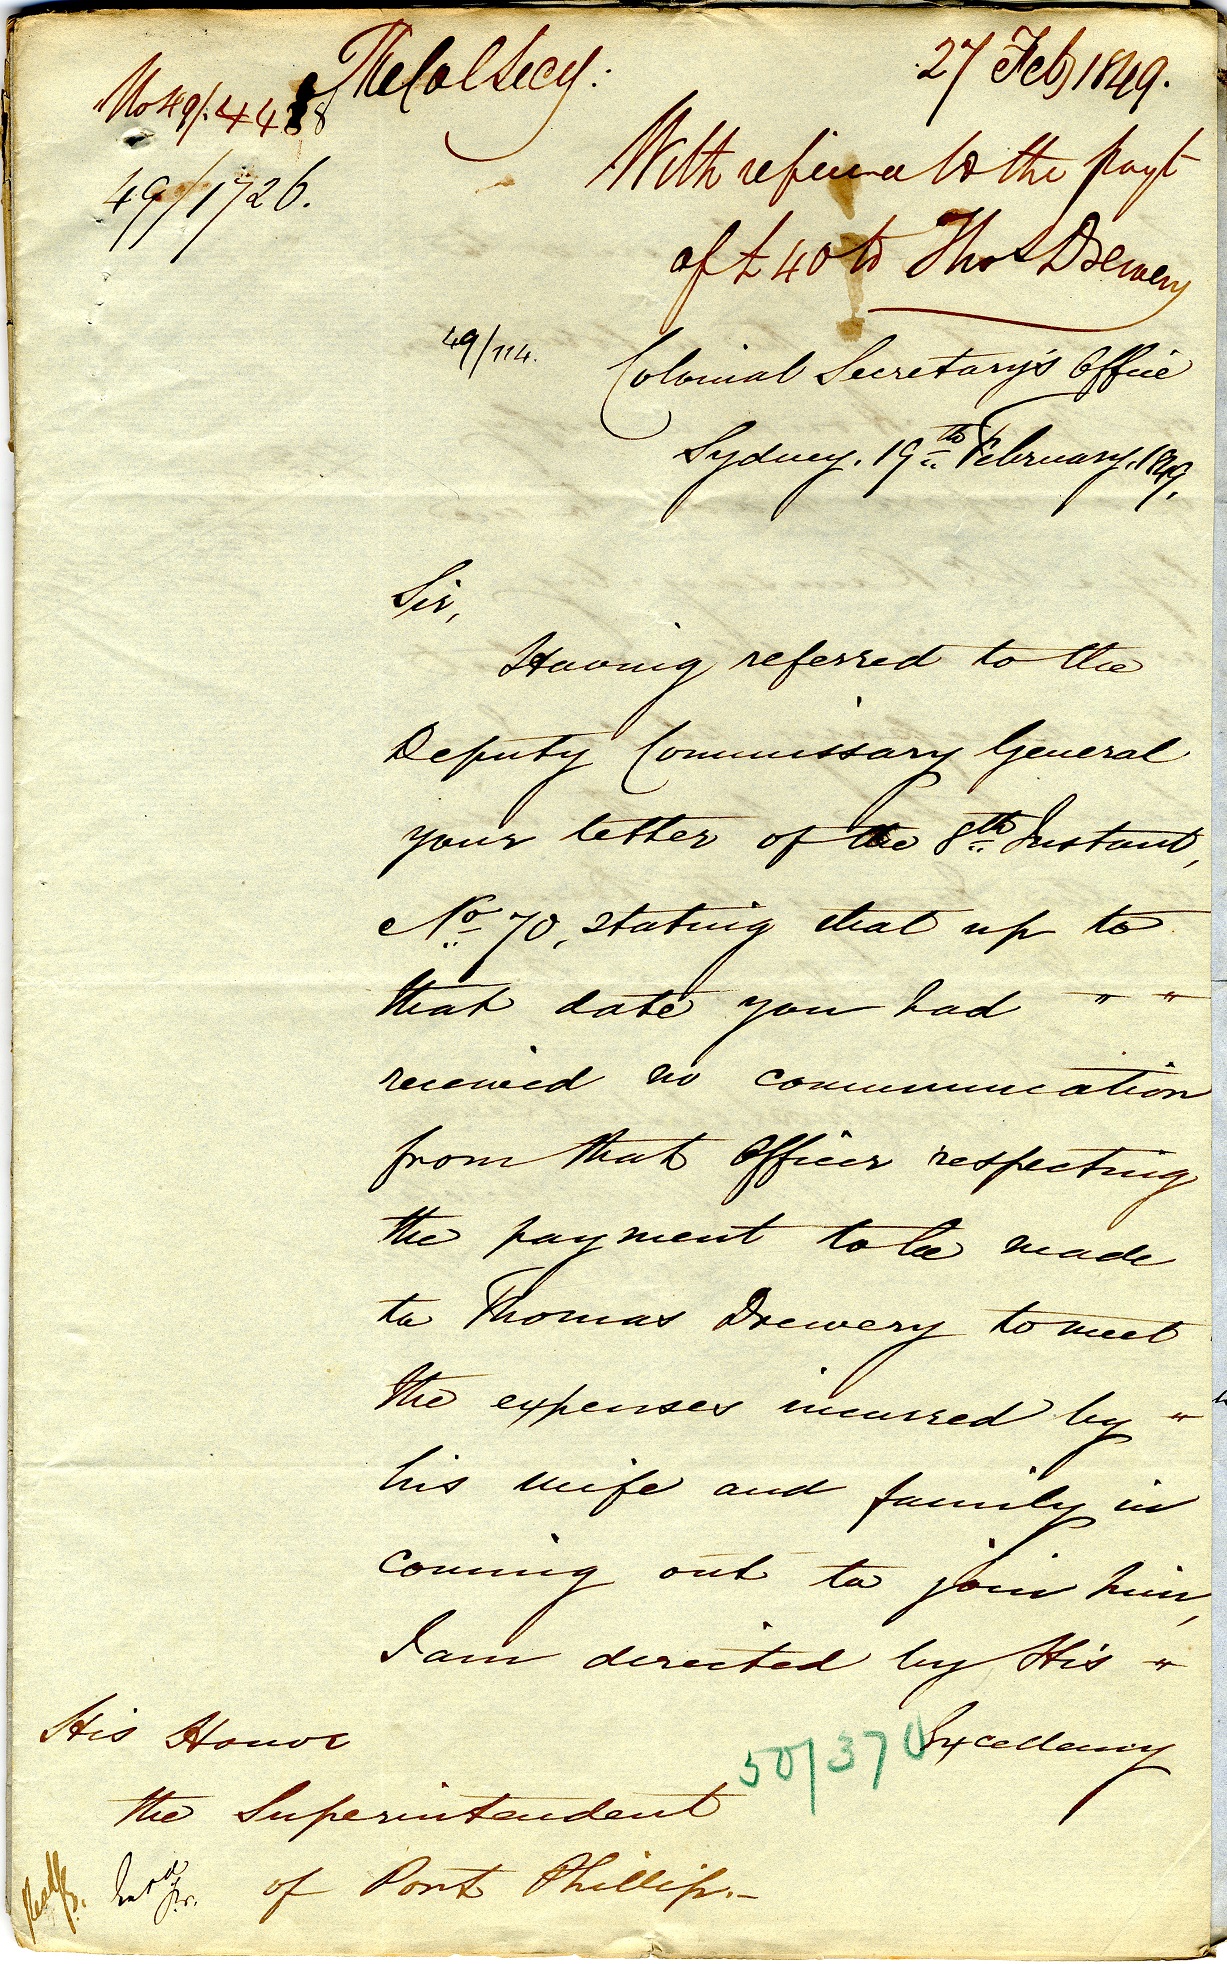 The Col Secy:
27 Feb 1849.
49/1726.
With reference to the payt
of £40 to Thos Drewery
49/114.
Colonial Secretary's Office
Sydney. 19th February, 1849.
Sir,
Having referred to the
Deputy Commissary General
your letter of the 8th Instant,
No 70, stating that up to
that date you had " "
received no communication
from that Officer respecting
the payment to be made
to Thomas Drewery to meet
the expenses incurred by "
his wife and family in
coming out to join him,
I am directed by His "
Excellency
His Honor
the Superintendent
of Port Phillip.-
50/370